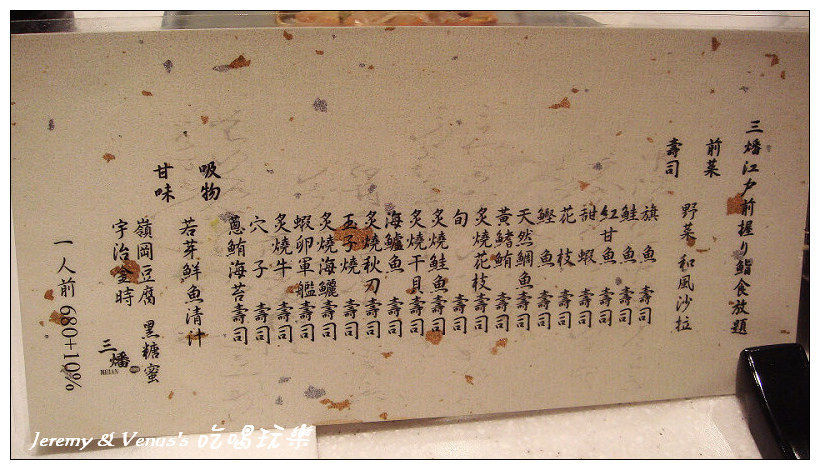 三燔江戶前握り鮨食放題
前菜
野菜 和風沙拉
壽司
旗魚壽司
鮭魚壽司
紅甘魚壽司
甜蝦壽司
花枝壽司
鰹魚壽司
天然鯛魚壽司
黃鰭鮪壽司
炙燒花枝壽司
旬壽司
炙燒鮭魚壽司
炙燒干貝壽司
海鱸魚壽司
炙燒秋刀壽司
玉子燒壽司
炙燒海鱺壽司
蝦卵軍艦壽司
炙燒牛壽司
穴子壽司
蔥鮪海苔壽司
吸物
若芽鮮魚清汁
甘味
嶺岡豆腐 黑糖蜜
宇治金時
三燔
一人前 680+10%
Jeremy & Venus's 吃喝玩樂